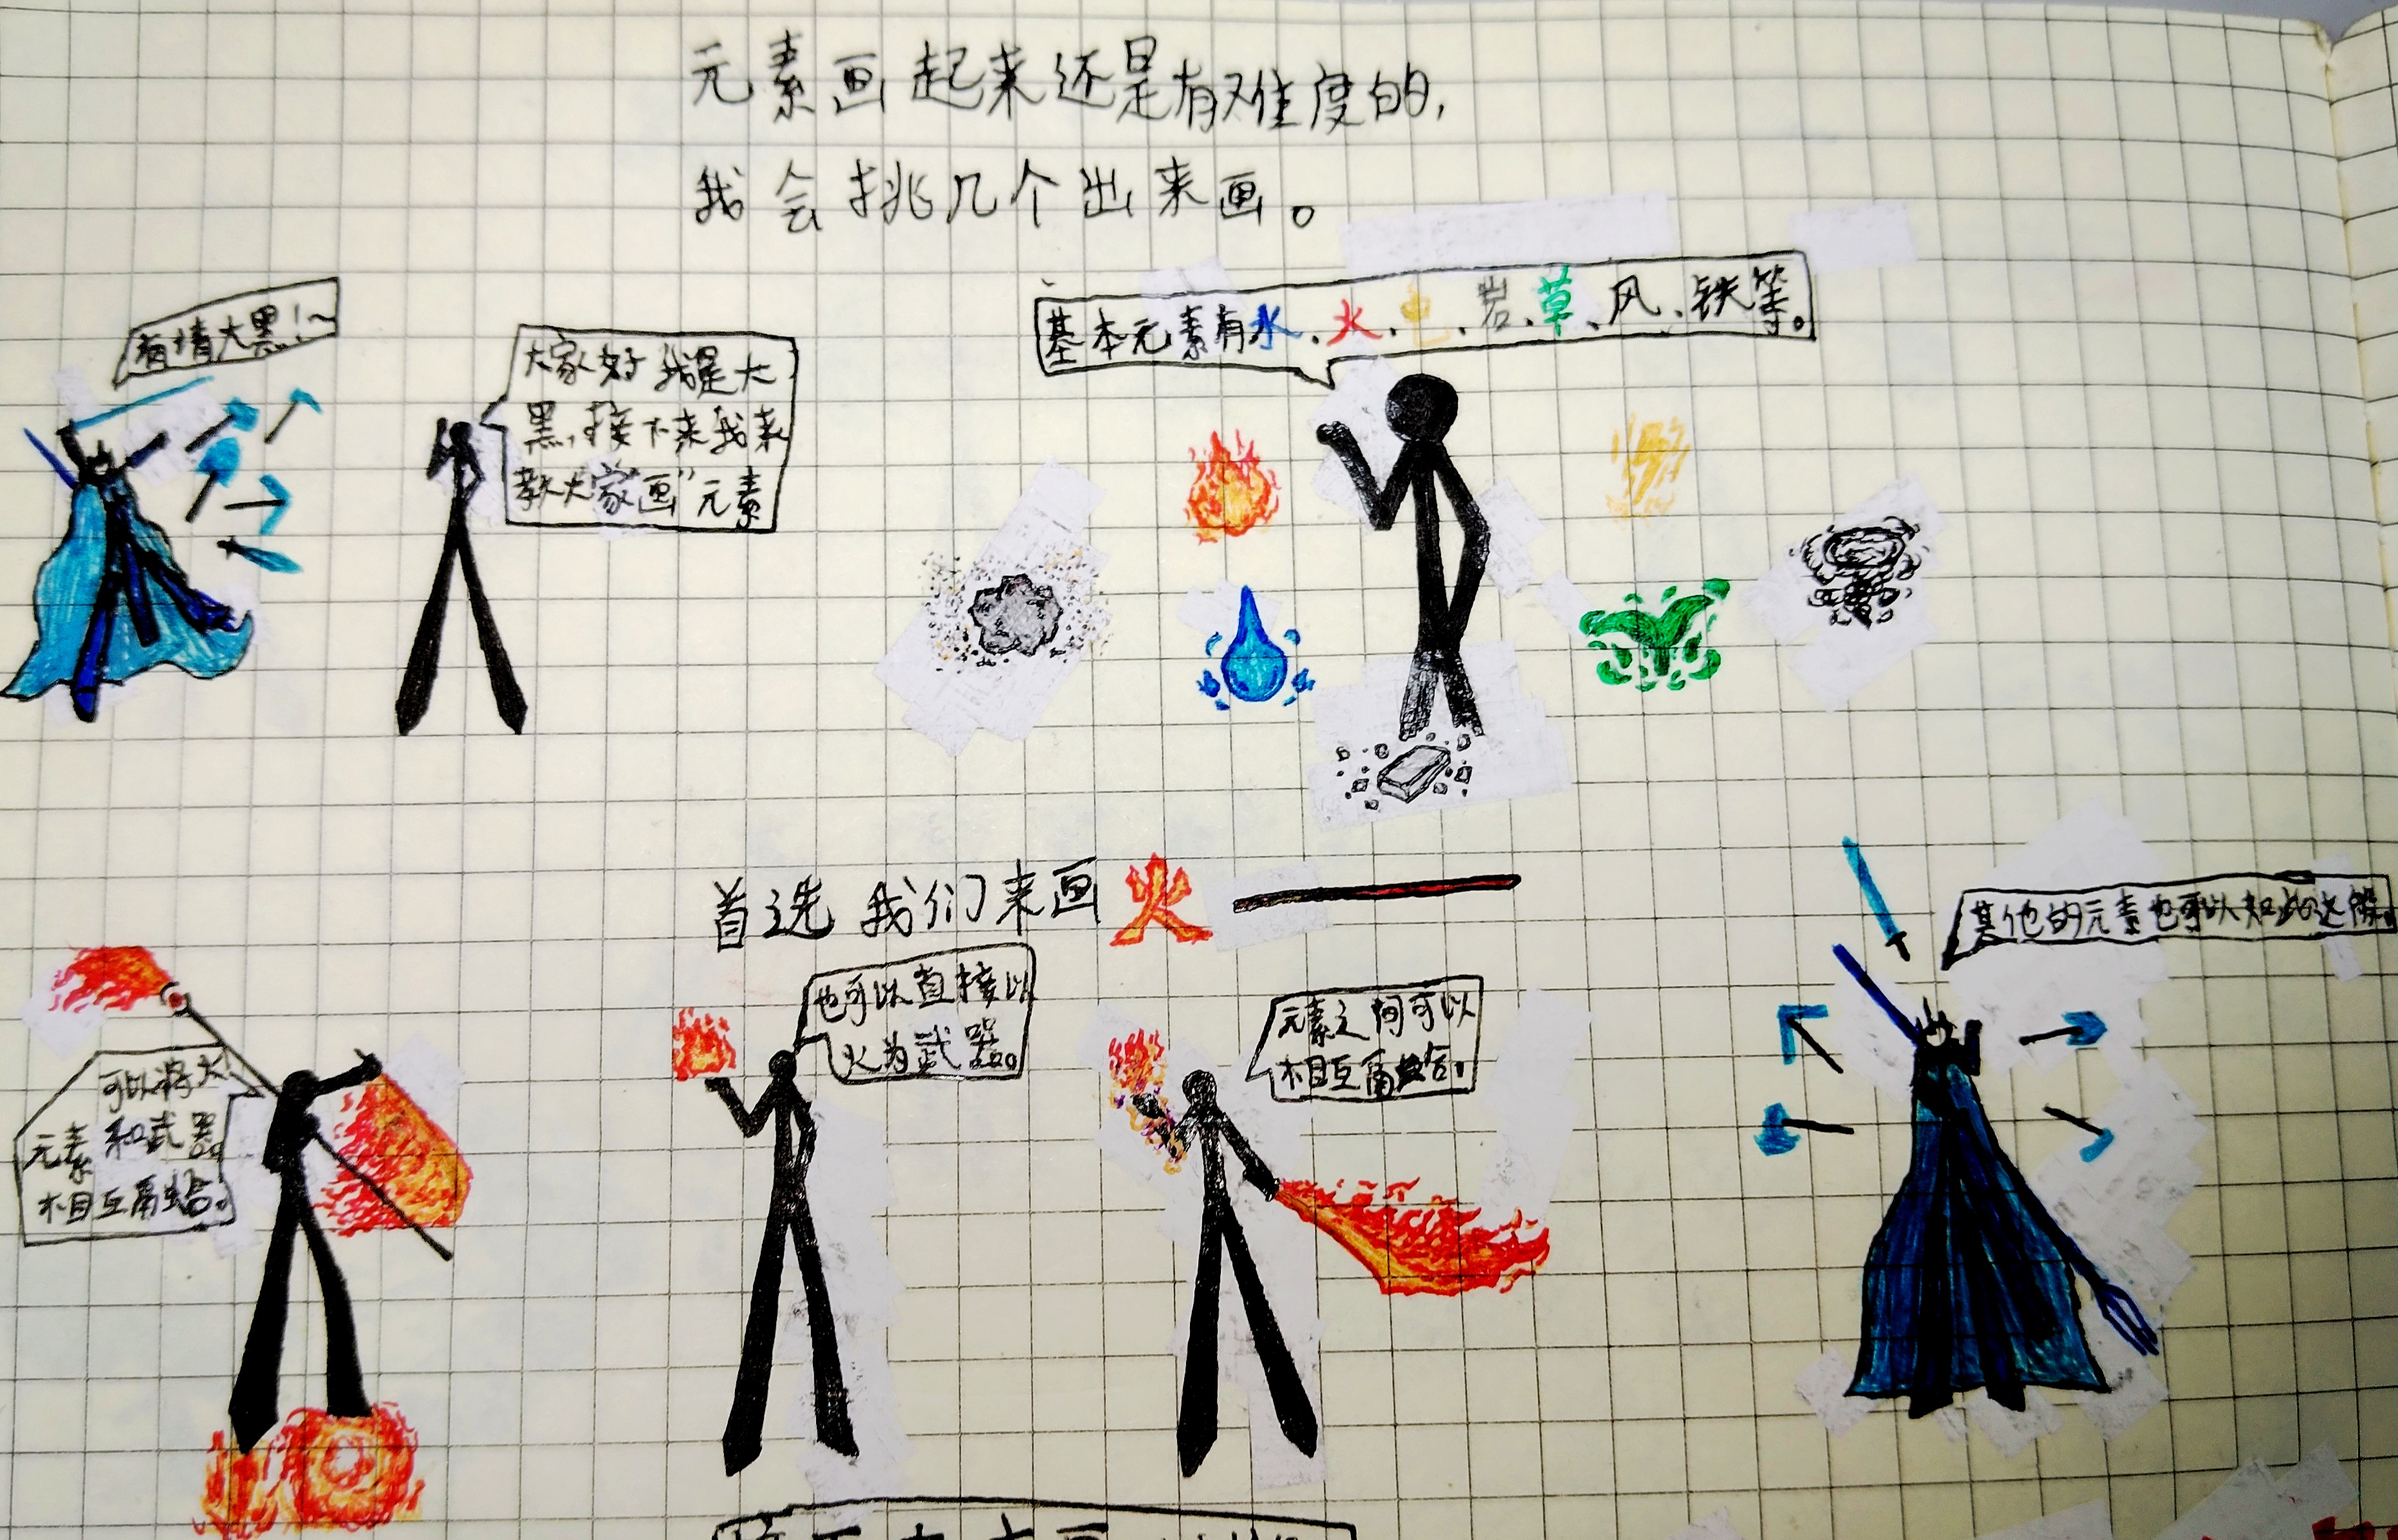 元素画起来还是有难度的,
我会挑几个出来画。
有情大黑!~
大家好 我是大
黑,接下来我来
教大家“画”元素
基本元素有水、火、电、岩、草、风、铁等。
首选 我们来画火
可以将火
元素和武器
相互融合。
也可以直接以
火为武器。
元素之间可以
相互融合。
其他的元素也可以如此达解。